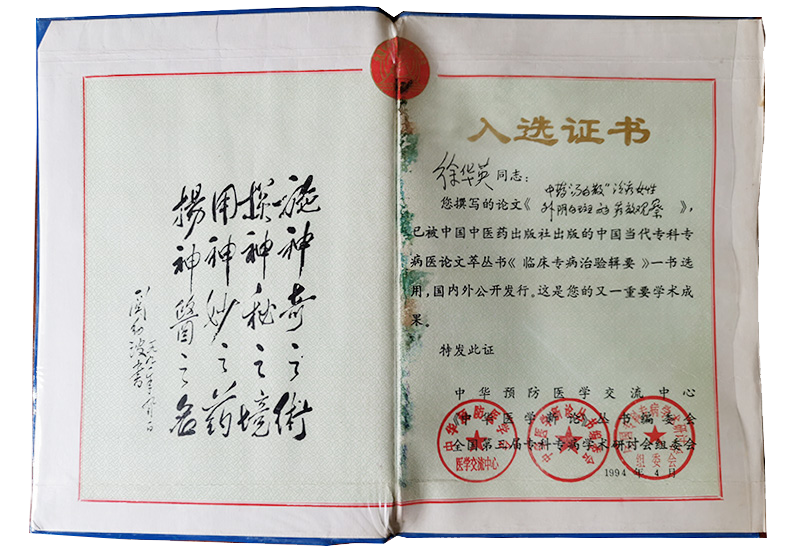 施神奇之術
探神秘之境
用神妙之药
揚神醫之名
入选证书
徐华英同志：
中药“白散”治疗女性
您撰写的论文《外阴白斑的疗效观察》，
已被中国中医药出版社出版的中国当代专科专
病医论文萃丛书《临床专病治验辑要》一书选
用，国内外公开发行。这是您的又一重要学术成
果。
特发此证
中华预防医学交流中心
医学论丛书编委会
全国第五届专科专病学术研讨会组委会
1994年4月
中华预防医学
医学交流中心
组委会